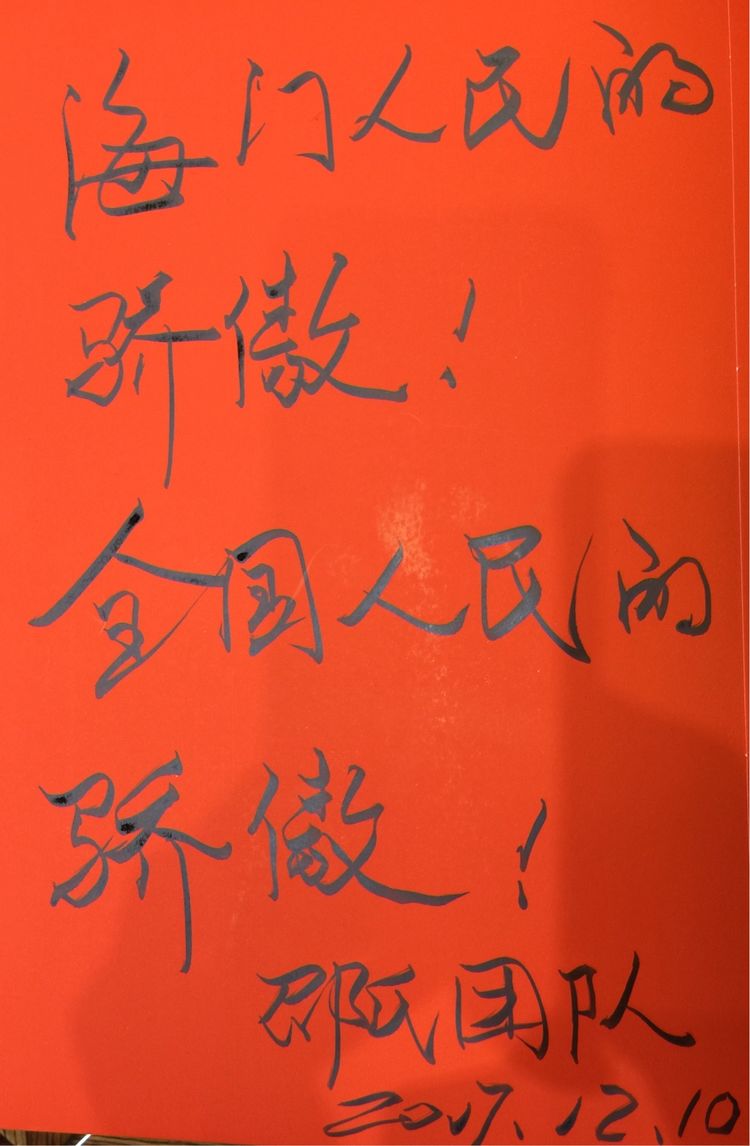 海门人民的
骄傲！
全国人民的
骄傲！
邵氏团队
2017.12.10